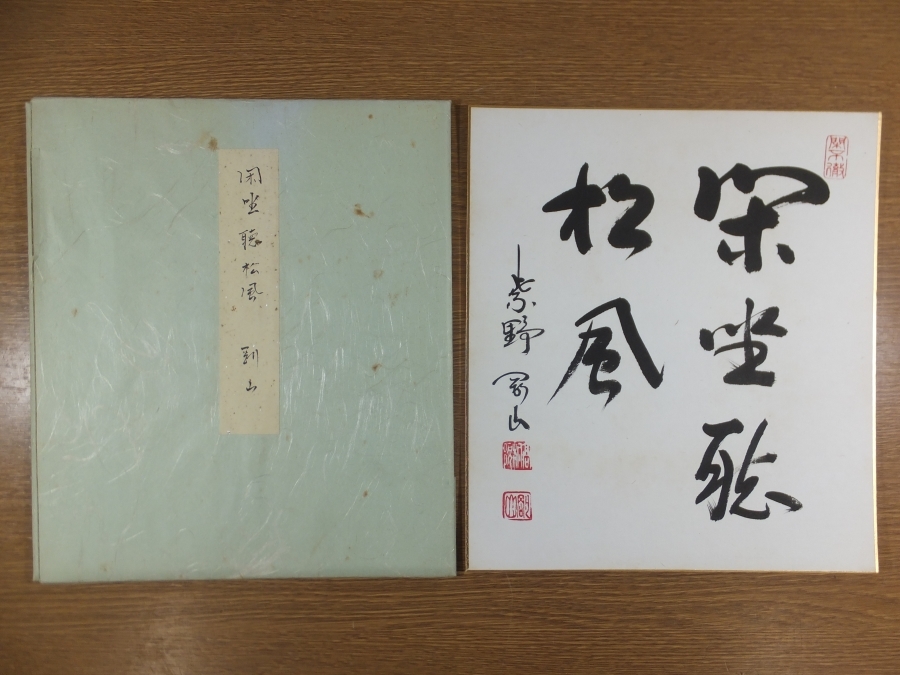 閑坐聴松風 剛山
閑坐聴
松風
紫野 剛山